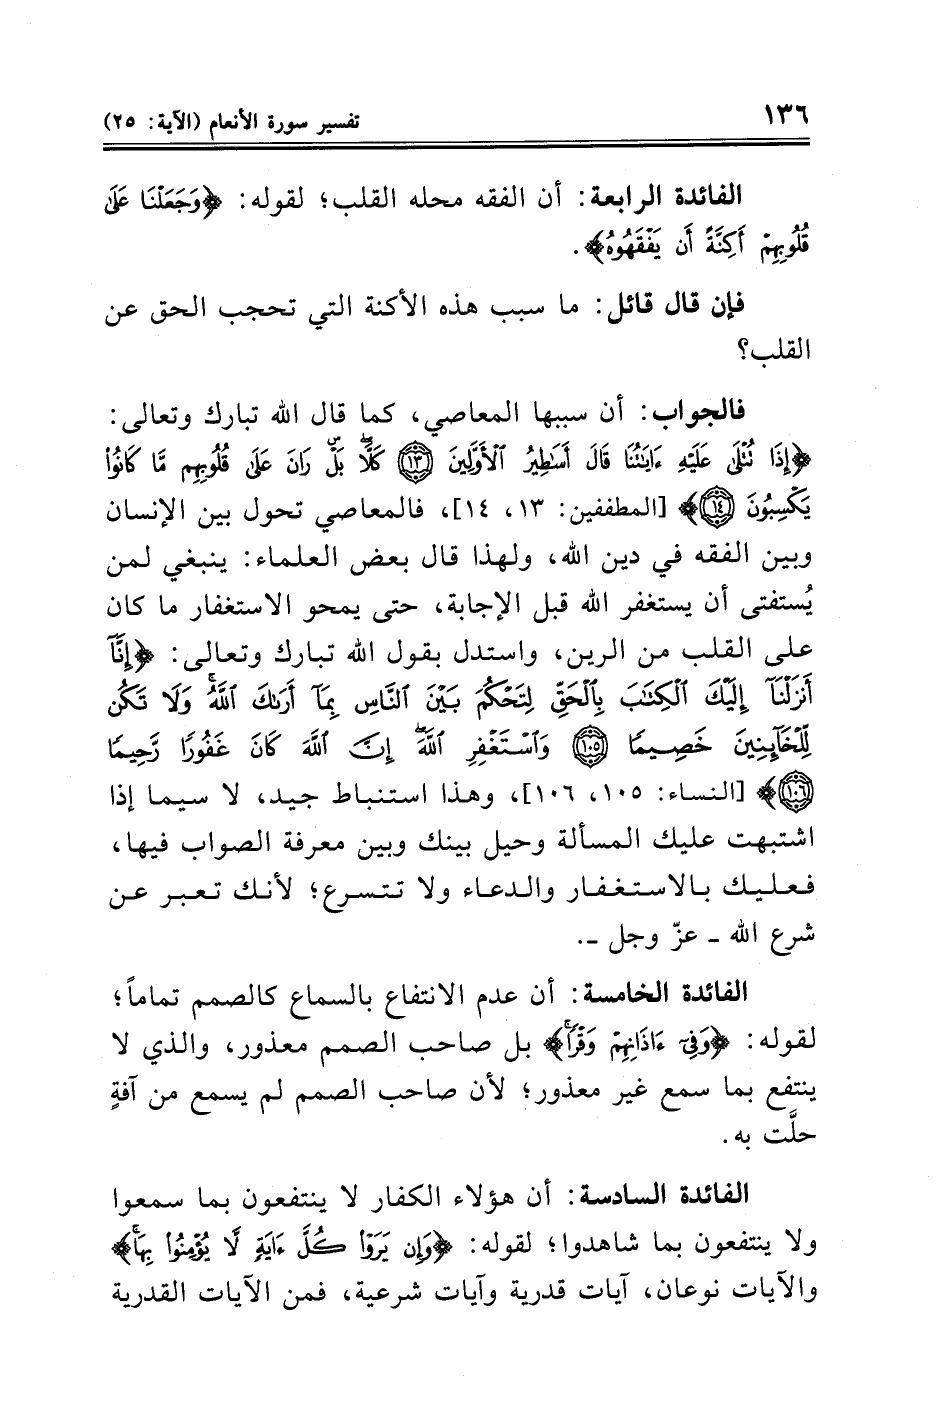 ١٣٦
تفسير سورة الأنعام (الآية: ٢٥)
الفائدة الرابعة: أن الفقه محله القلب؛ لقوله: ﴿وَجَعَلْنَا عَلَىٰ
قُلُوبِهِمْ أَكِنَّةً أَن يَفْقَهُوهُ﴾.
فإن قال قائل: ما سبب هذه الأكنة التي تحجب الحق عن
القلب؟
فالجواب: أن سببها المعاصي، كما قال الله تبارك وتعالى:
﴿إِذَا تُتْلَىٰ عَلَيْهِ ءَايَٰتُنَا قَالَ أَسَٰطِيرُ ٱلْأَوَّلِينَ ١٣ كَلَّا ۖ بَلْ ۜ رَانَ عَلَىٰ قُلُوبِهِم مَّا كَانُوا۟
يَكْسِبُونَ ١٤﴾ [المطففين: ١٣، ١٤]، فالمعاصي تحول بين الإنسان
وبين الفقه في دين الله، ولهذا قال بعض العلماء: ينبغي لمن
يُستفتى أن يستغفر الله قبل الإجابة، حتى يمحو الاستغفار ما كان
على القلب من الرين، واستدل بقول الله تبارك وتعالى: ﴿إِنَّآ
أَنزَلْنَآ إِلَيْكَ ٱلْكِتَٰبَ بِٱلْحَقِّ لِتَحْكُمَ بَيْنَ ٱلنَّاسِ بِمَآ أَرَىٰكَ ٱللَّهُ ۚ وَلَا تَكُن
لِّلْخَآئِنِينَ خَصِيمًا ١٠٥ وَٱسْتَغْفِرِ ٱللَّهَ ۖ إِنَّ ٱللَّهَ كَانَ غَفُورًا رَّحِيمًا
١٠٦﴾ [النساء: ١٠٥، ١٠٦]، وهذا استنباط جيد، لا سيما إذا
اشتبهت عليك المسألة وحيل بينك وبين معرفة الصواب فيها،
فعليك بالاستغفار والدعاء ولا تتسرع؛ لأنك تعبر عن
شرع الله ـ عزّ وجل ـ.
الفائدة الخامسة: أن عدم الانتفاع بالسماع كالصمم تماماً؛
لقوله: ﴿وَفِىٓ ءَاذَانِهِمْ وَقْرًا ۚ﴾ بل صاحب الصمم معذور، والذي لا
ينتفع بما سمع غير معذور؛ لأن صاحب الصمم لم يسمع من آفةٍ
حلَّت به.
الفائدة السادسة: أن هؤلاء الكفار لا ينتفعون بما سمعوا
ولا ينتفعون بما شاهدوا؛ لقوله: ﴿وَإِن يَرَوْا۟ كُلَّ ءَايَةٍ لَّا يُؤْمِنُوا۟ بِهَا ۚ﴾
والآيات نوعان، آيات قدرية وآيات شرعية، فمن الآيات القدرية